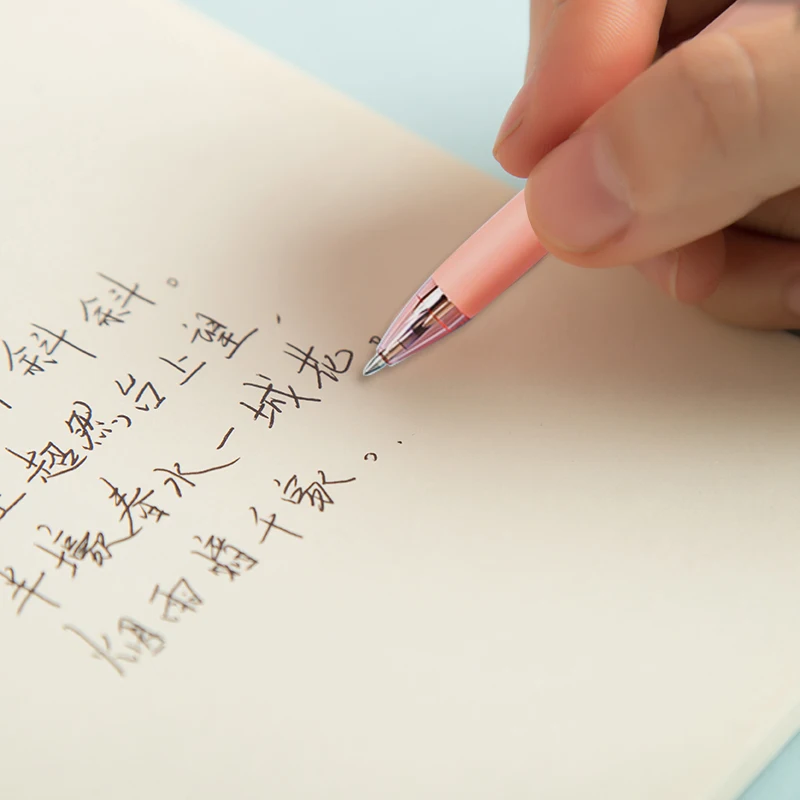 斜斜。
上超然台上望，
半壕春水一城花。
烟雨暗千家。